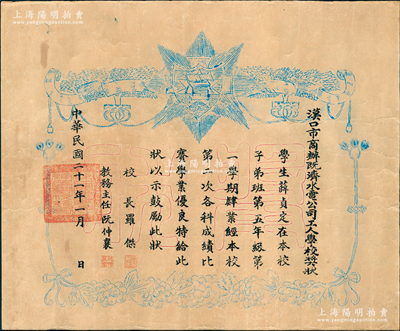 上海陽明拍賣
漢口市商辦既濟水電公司工人學校獎狀
學生薛貞定在本校
子弟班第五年級第
一學期肄業經本校
第二次各科成績比
賽學業優良特給此
狀以示鼓勵此狀
校長羅傑
教務主任阮仲襄
中華民國二十一年一月 日
上海陽明拍賣